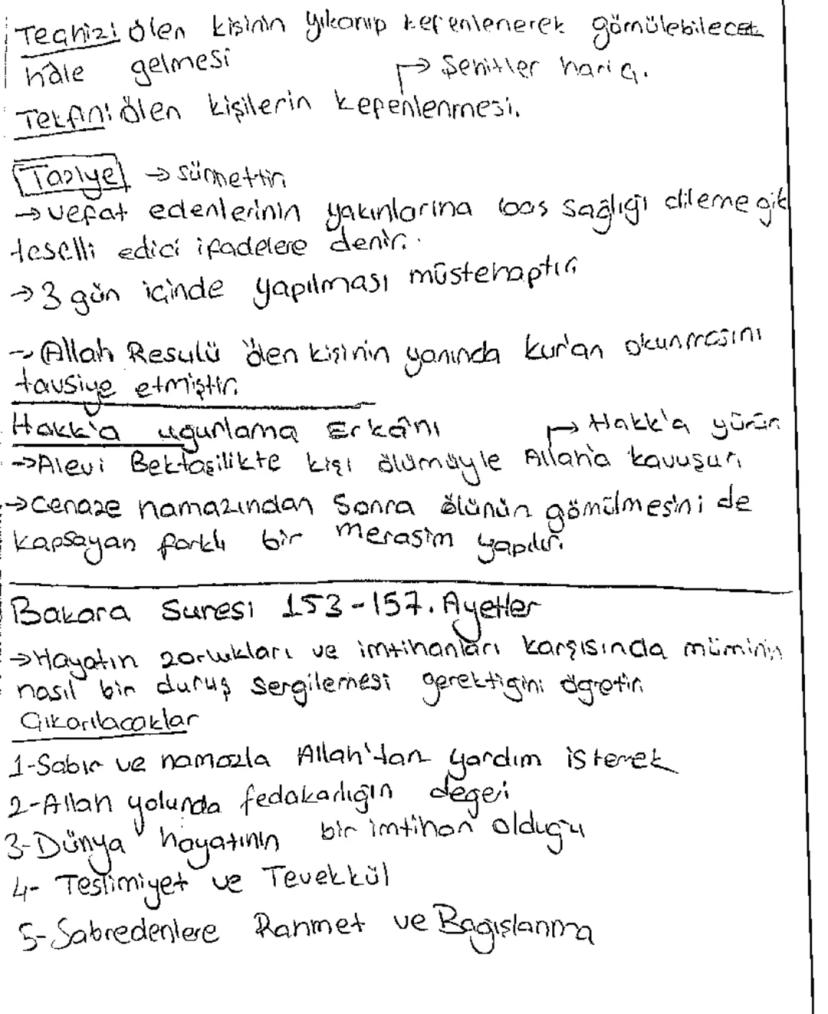 Teçhiz: Ölen kişinin yıkanıp kefenlenerek gömülebilecek
hâle gelmesi
→ Şehitler hariç.
Tekfin: Ölen kişilerin kefenlenmesi.
Taziye → sünnettir.
→ vefat edenlerinin yakınlarına baş sağlığı dileme gibi
teselli edici ifadelere denir.
→ 3 gün içinde yapılması müstehaptır.
→ Allah Resulü ölen kişinin yanında kur'an okunmasını
tavsiye etmiştir.
Hakk'a uğurlama Erkânı
→ Hakk'a yürür
→ Alevi Bektaşilikte kişi ölümüyle Allah'a kavuşur.
→ Cenaze namazından sonra ölünün gömülmesini de
kapsayan farklı bir merasim yapılır.
Bakara Suresi 153-157. Ayetler
→ Hayatın zorlukları ve imtihanları karşısında müminin
nasıl bir duruş sergilemesi gerektiğini öğretir.
Çıkarılacaklar
1-Sabır ve namazla Allah'tan yardım istemek
2-Allah yolunda fedakarlığın değeri
3-Dünya hayatının bir imtihan olduğu
4- Teslimiyet ve Tevekkül
5-Sabredenlere Rahmet ve Bağışlanma